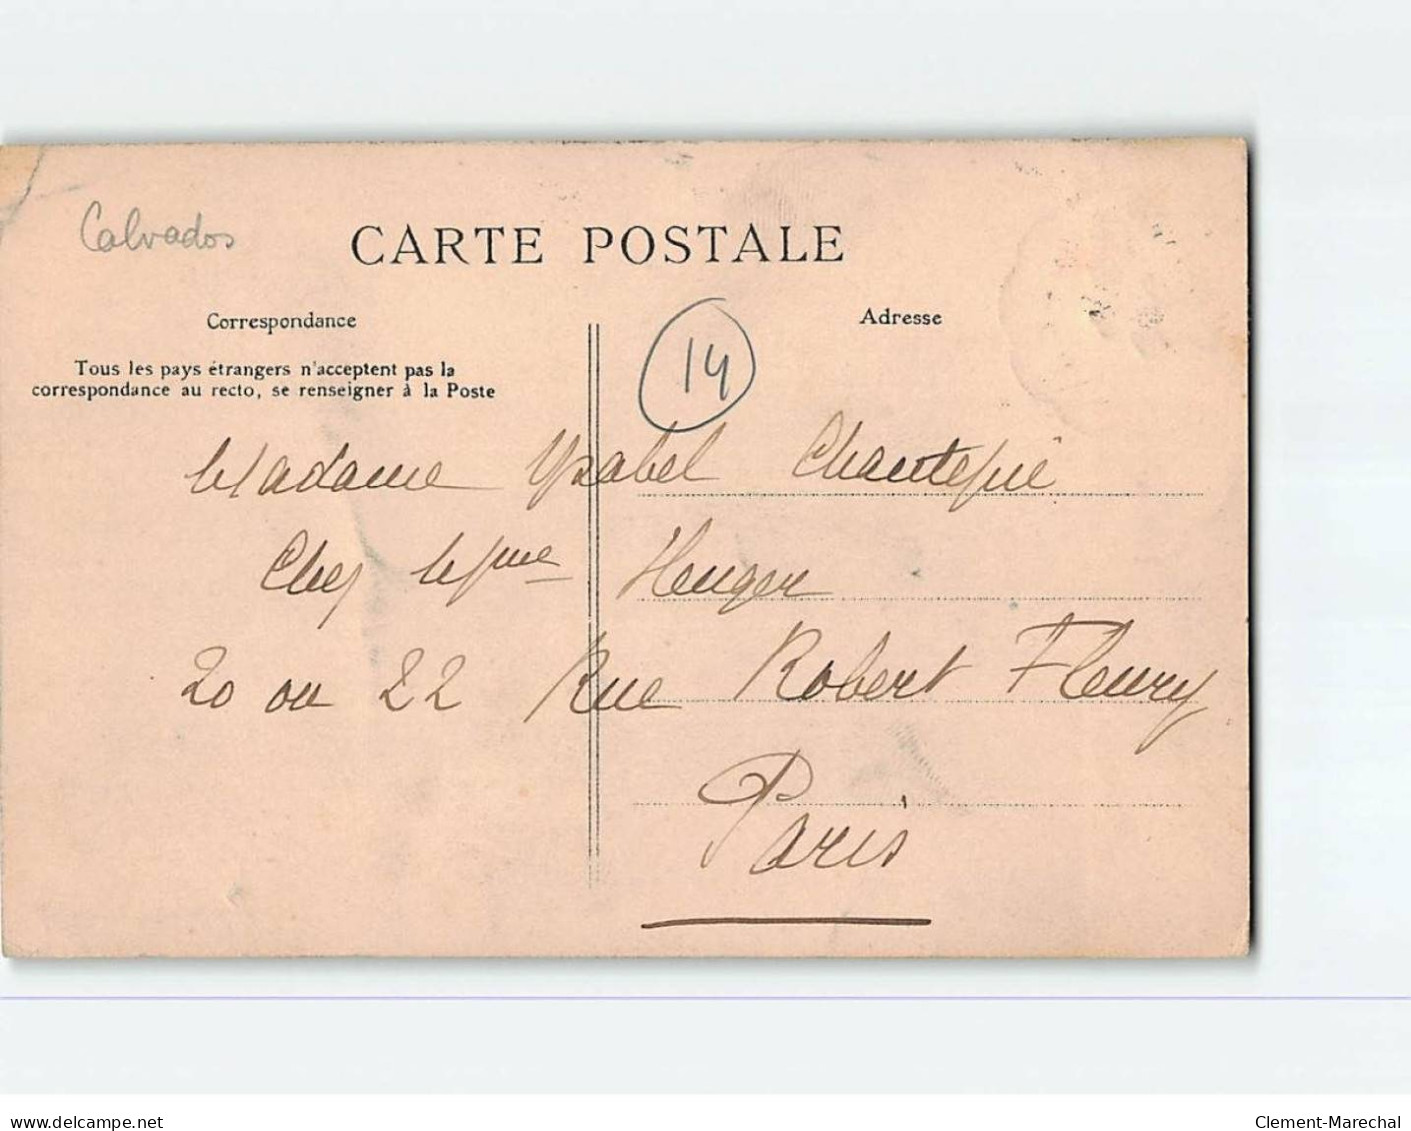 Calvados
CARTE POSTALE
Correspondance
Adresse
Tous les pays étrangers n'acceptent pas la
correspondance au recto, se renseigner à la Poste
14
Madame Ysabel Chantepie
Chez Mme Heuger
20 ou 22 Rue Robert Fleury
Paris
www.delcampe.net
Clement-Marechal